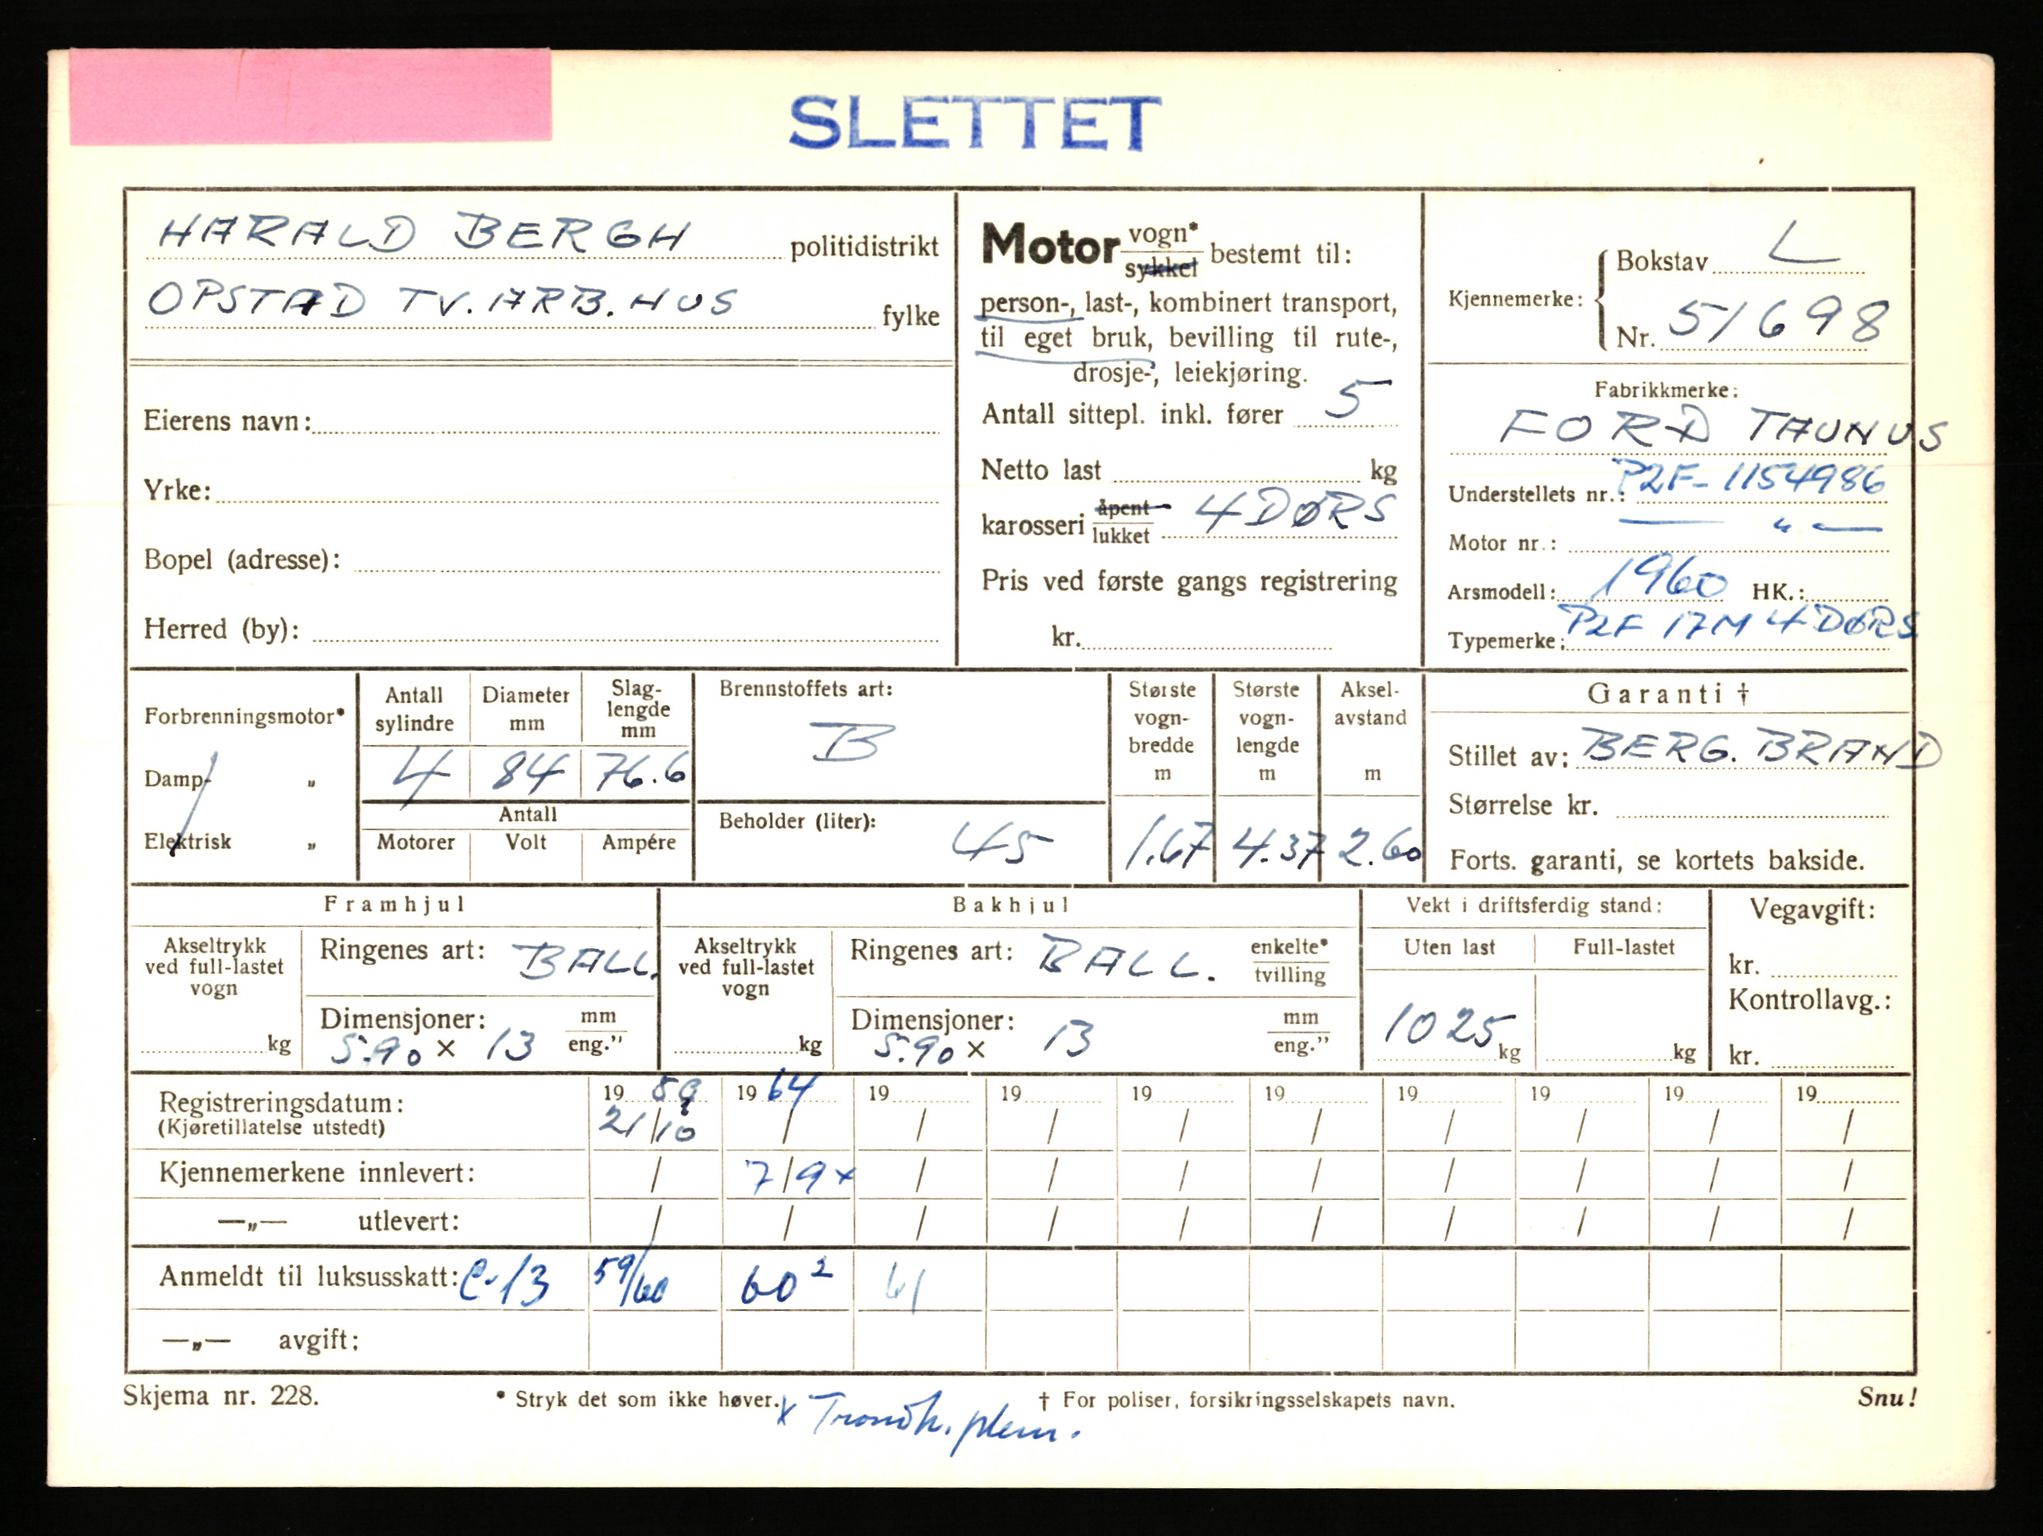 SLETTET
HARALD BERGH politidistrikt
OPSTAD TV. ARB. HUS fylke
Eierens navn:
Yrke:
Bopel (adresse):
Herred (by):
Motor vogn* sykkel bestemt til:
person-, last-, kombinert transport,
til eget bruk, bevilling til rute-,
drosje-, leiekjøring.
Antall sittepl. inkl. fører 5
Netto last kg
karosseri åpent lukket 4 DØRS
Pris ved første gangs registrering
kr.
Kjennemerke: Bokstav L
Nr. 51698
Fabrikkmerke:
FORD TAUNUS
Understellets nr.: P2F-1154986
Motor nr.: — " —
Arsmodell: 1960 HK.:
Typemerke: P2F 17M 4 DØRS
Forbrenningsmotor*
Damp- „
Elektrisk „
Antall sylindre
4
Diameter mm
84
Slag-lengde mm
76.6
Antall
Motorer Volt Ampére
Brennstoffets art:
B
Beholder (liter): 45
Største vogn-bredde m
1.67
Største vogn-lengde m
4.37
Aksel-avstand m
2.60
Garanti †
Stillet av: BERG. BRAND
Størrelse kr.
Forts. garanti, se kortets bakside.
Framhjul
Akseltrykk ved full-lastet vogn
kg
Ringenes art: BALL.
Dimensjoner: mm
5.90 x 13 eng."
Bakhjul
Akseltrykk ved full-lastet vogn
kg
Ringenes art: BALL. enkelte* tvilling
Dimensjoner: mm
5.90 x 13 eng."
Vekt i driftsferdig stand:
Uten last Full-lastet
1025 kg kg
Vegavgift:
kr.
Kontrollavg.:
kr.
19 59 19 64 19 19 19 19 19 19 19 19
Registreringsdatum: 21/10 / / / / / / / / /
(Kjøretillatelse utstedt)
Kjennemerkene innlevert: / 7/9 x / / / / / / / /
—„— utlevert: / / / / / / / / / /
Anmeldt til luksusskatt: C-13 59/60 60² 61
—„— avgift:
Skjema nr. 228. * Stryk det som ikke høver. † For poliser, forsikringsselskapets navn. Snu!
x Trondh.